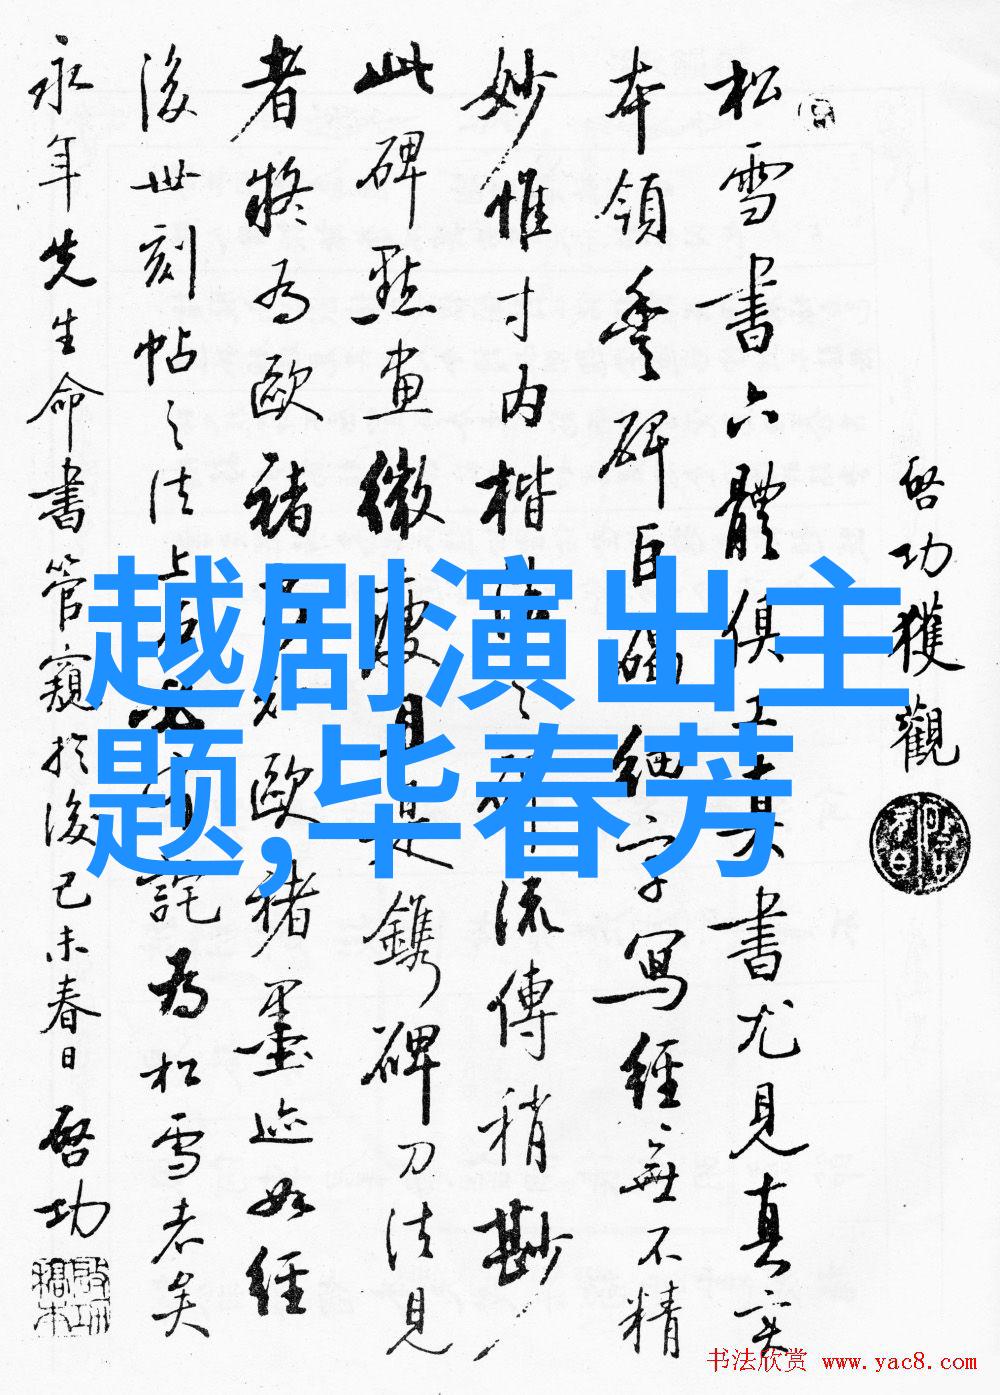 松雪書六體俱工真書尤見真實
本領豐碑巨碣細字寫經無不精
妙惟寸內楷
流傳稍尠
此碑點畫
鐫碑刀法見
者將為歐褚
歐褚墨迹如經
後世刻帖之法
詫為松雪者矣
永年先生命書管窺於後己未春日 啓功
啓功獲觀
越剧演出主
题,毕春芳
书法欣赏 www.yac8.com